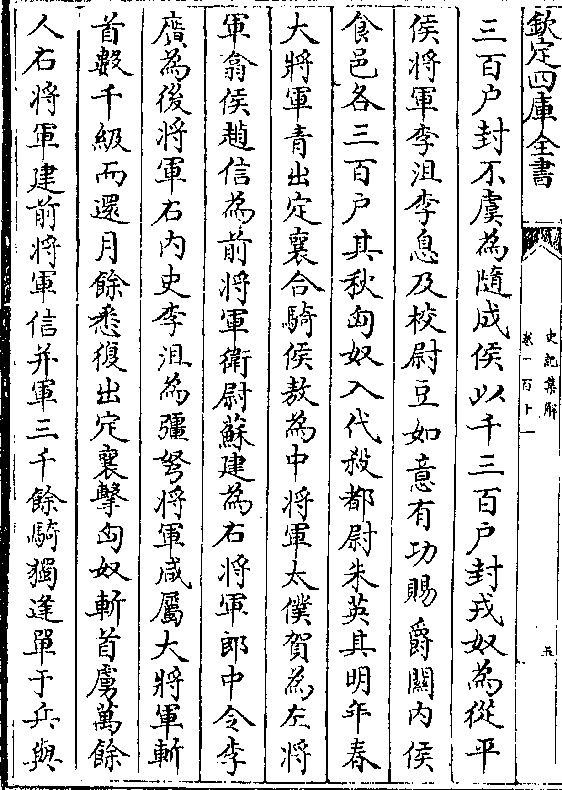 欽定四庫全書
史記集解
卷一百十一
五
三百户封不虞為隨成侯以千三百户封戎奴為從平
侯將軍李沮李息及校尉豆如意有功賜爵關内侯
食邑各三百户其秋匈奴入代殺都尉朱英其明年春
大將軍青出定襄合騎侯敖為中將軍太僕賀為左將
軍翕侯趙信為前將軍衛尉蘇建為右將軍郎中令李
廣為後將軍右内史李沮為彊弩將軍咸屬大將軍斬
首數千級而還月餘悉復出定襄擊匈奴斬首虜萬餘
人右將軍建前將軍信并軍三千餘騎獨逢單于兵與